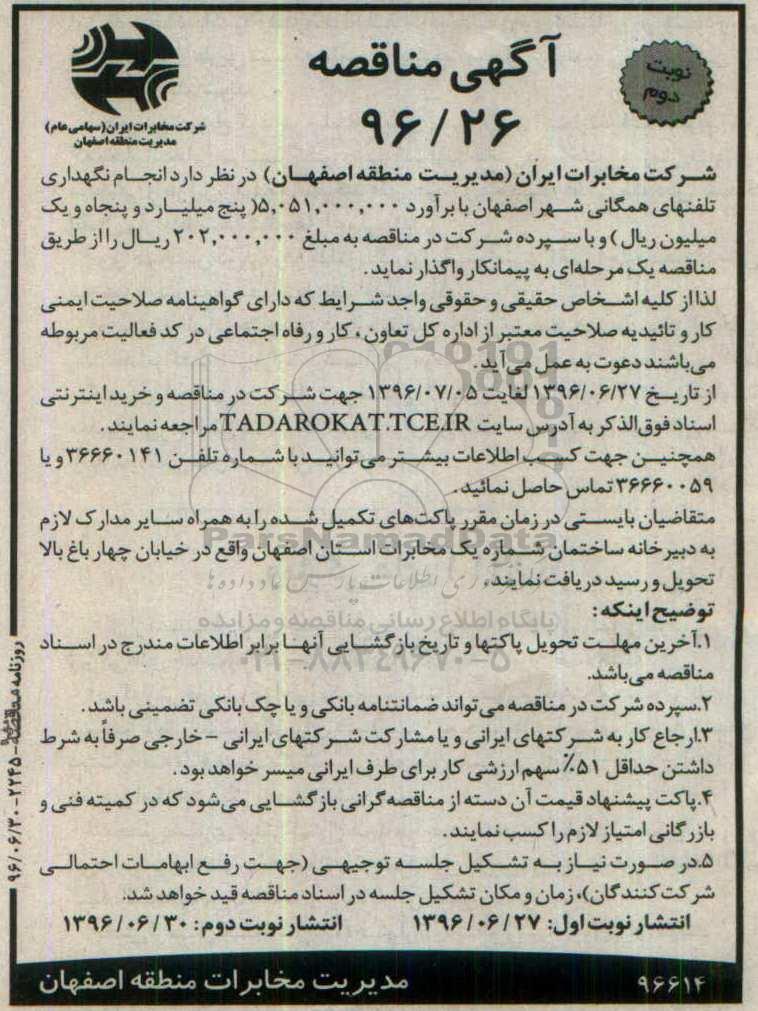 نوبت
دوم
آگهی مناقصه
۹۶/۲۶
شرکت مخابرات ایران (سهامی عام)
مدیریت منطقه اصفهان
شرکت مخابرات ایران (مدیریت منطقه اصفهان) در نظر دارد انجام نگهداری
تلفنهای همگانی شهر اصفهان با برآورد ۵,۰۵۱,۰۰۰,۰۰۰( پنج میلیارد و پنجاه و یک
میلیون ریال) و با سپرده شرکت در مناقصه به مبلغ ۲۰۲,۰۰۰,۰۰۰ ریال را از طریق
مناقصه یک مرحله‌ای به پیمانکار واگذار نماید.
لذا از کلیه اشخاص حقیقی و حقوقی واجد شرایط که دارای گواهینامه صلاحیت ایمنی
کار و تائیدیه صلاحیت معتبر از اداره کل تعاون، کار و رفاه اجتماعی در کد فعالیت مربوطه
می‌باشند دعوت به عمل می‌آید.
از تاریخ ۱۳۹۶/۰۶/۲۷ لغایت ۱۳۹۶/۰۷/۰۵ جهت شرکت در مناقصه و خرید اینترنتی
اسناد فوق‌الذکر به آدرس سایت TADAROKAT.TCE.IR مراجعه نمایند.
همچنین جهت کسب اطلاعات بیشتر می‌توانید با شماره تلفن ۳۶۶۶۰۱۴۱ و یا
۳۶۶۶۰۰۵۹ تماس حاصل نمائید.
متقاضیان بایستی در زمان مقرر پاکت‌های تکمیل شده را به همراه سایر مدارک لازم
به دبیرخانه ساختمان شماره یک مخابرات استان اصفهان واقع در خیابان چهار باغ بالا
تحویل و رسید دریافت نمایند.
ParsNamadData
پایگاه اطلاع رسانی مناقصه و مزایده
۰۲۱-۸۸۳۴۹۶۷۰-۵
توضیح اینکه:
۱.آخرین مهلت تحویل پاکتها و تاریخ بازگشایی آنها برابر اطلاعات مندرج در اسناد
مناقصه می‌باشد.
۲.سپرده شرکت در مناقصه می‌تواند ضمانتنامه بانکی و یا چک بانکی تضمینی باشد.
۳.ارجاع کار به شرکتهای ایرانی و یا مشارکت شرکتهای ایرانی - خارجی صرفاً به شرط
داشتن حداقل ۵۱٪ سهم ارزشی کار برای طرف ایرانی میسر خواهد بود.
۴.پاکت پیشنهاد قیمت آن دسته از مناقصه‌گرانی بازگشایی می‌شود که در کمیته فنی و
بازرگانی امتیاز لازم را کسب نمایند.
۵.در صورت نیاز به تشکیل جلسه توجیهی (جهت رفع ابهامات احتمالی
شرکت‌کنندگان)، زمان و مکان تشکیل جلسه در اسناد مناقصه قید خواهد شد.
انتشار نوبت اول: ۱۳۹۶/۰۶/۲۷ انتشار نوبت دوم: ۱۳۹۶/۰۶/۳۰
۹۶۶۱۴
مدیریت مخابرات منطقه اصفهان
روزنامه مناقصه - ۲۲۴۵ - ۹۶/۰۶/۳۰